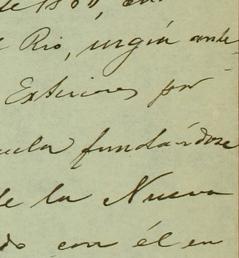 de 18
Rio, urgía ante
Exteriores por
uela fundándose
de la Nueva
do con él en